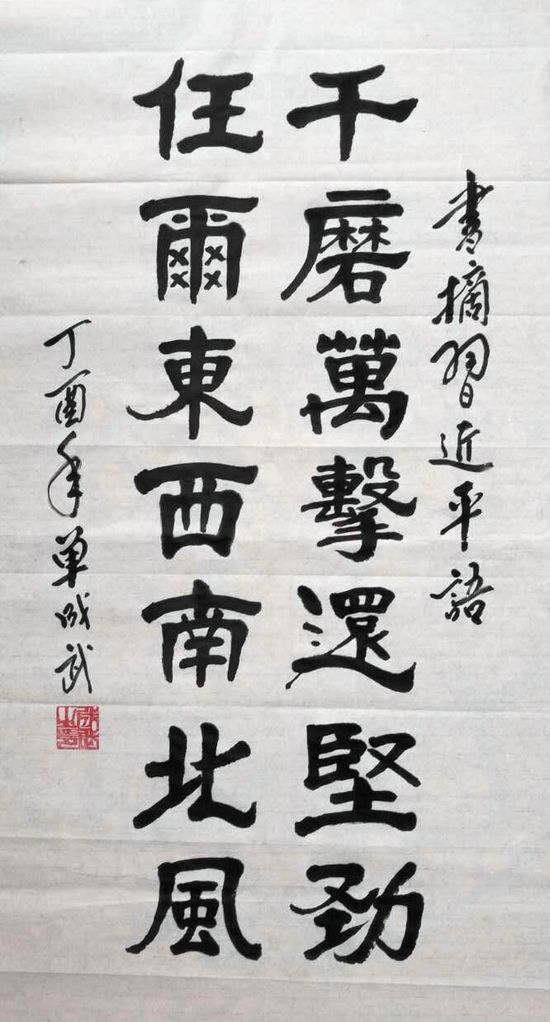 書摘習近平語
千磨萬擊還堅勁
任爾東西南北風
丁酉年单成武